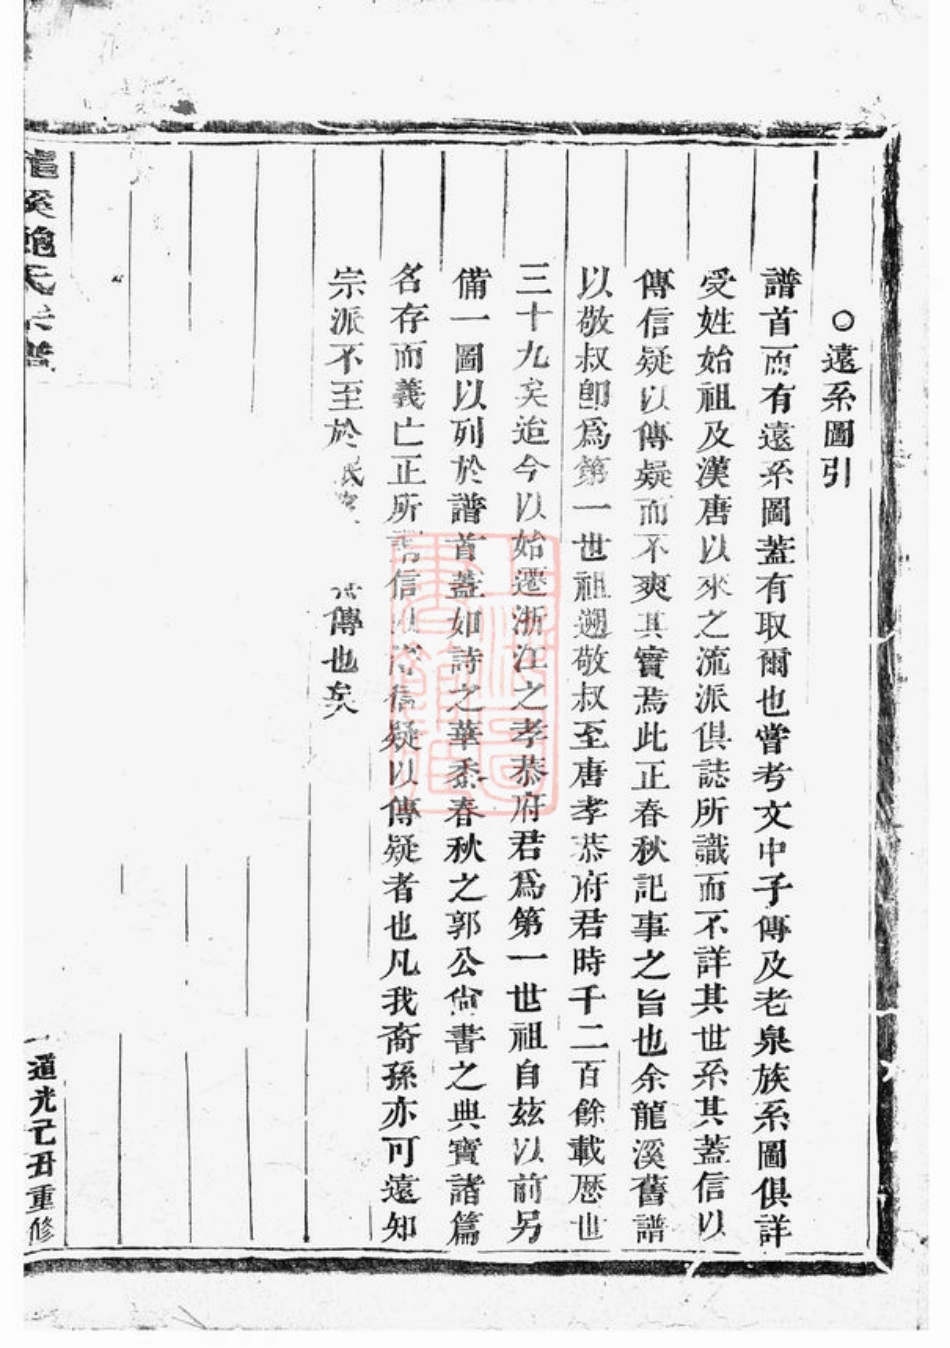 ○遠系圖引
譜首而有遠系圖蓋有取爾也嘗考文中子傳及老泉族系圖俱詳
受姓始祖及漢唐以來之流派俱誌所識而不詳其世系其蓋信以
傳信疑以傳疑而不爽其實焉此正春秋記事之旨也余龍溪舊譜
以敬叔卽爲第一世祖遡敬叔至唐孝恭府君時千二百餘載歷世
三十九矣迨今以始遷浙江之孝恭府君爲第一世祖自玆以前另
備一圖以列於譜首蓋如詩之華黍春秋之郭公尙書之典寶諸篇
名存而義亡正所謂信以傳信疑以傳疑者也凡我裔孫亦可遠知
宗派不至於 傳也矣
龍溪鮑氏宗譜
道光己丑重修